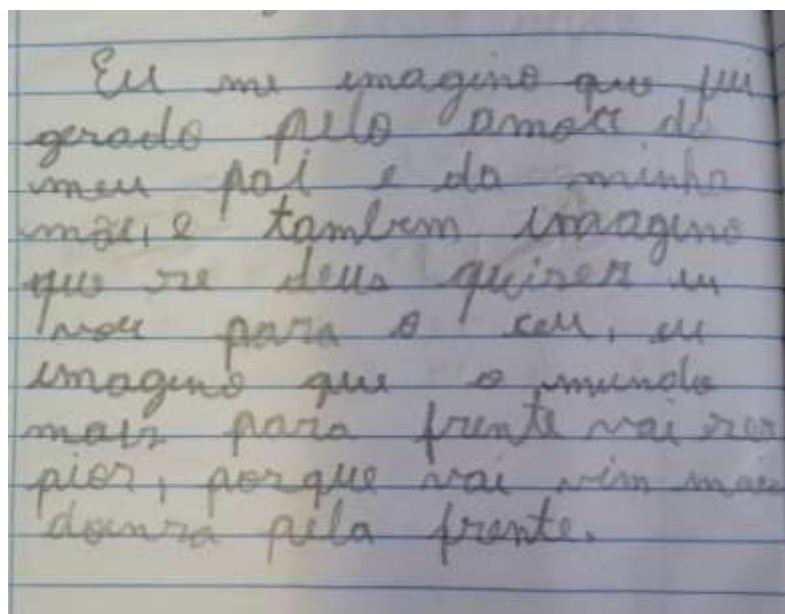 Eu me imagino que fui
gerado pelo amor do
meu pai e da minha
mãe, e tambem imagino
que se deus quiser eu
vou para o ceu, eu
imagino que o mundo
mais para frente vai ser
pior, porque vai vim mais
doenra pela frente.